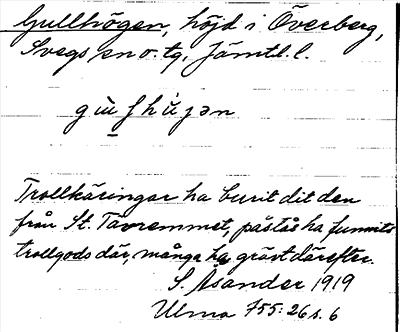 Gullhögen, höjd i Överberg,
Svegs sn o. tg, Jämtl. l.
Trollkäringar ha burit dit den
från St. Tavremmet, påstås ha funnits
trollgods där, många ha grävt därefter.
S. Åsander 1919
Ulma 755:26 s. 6